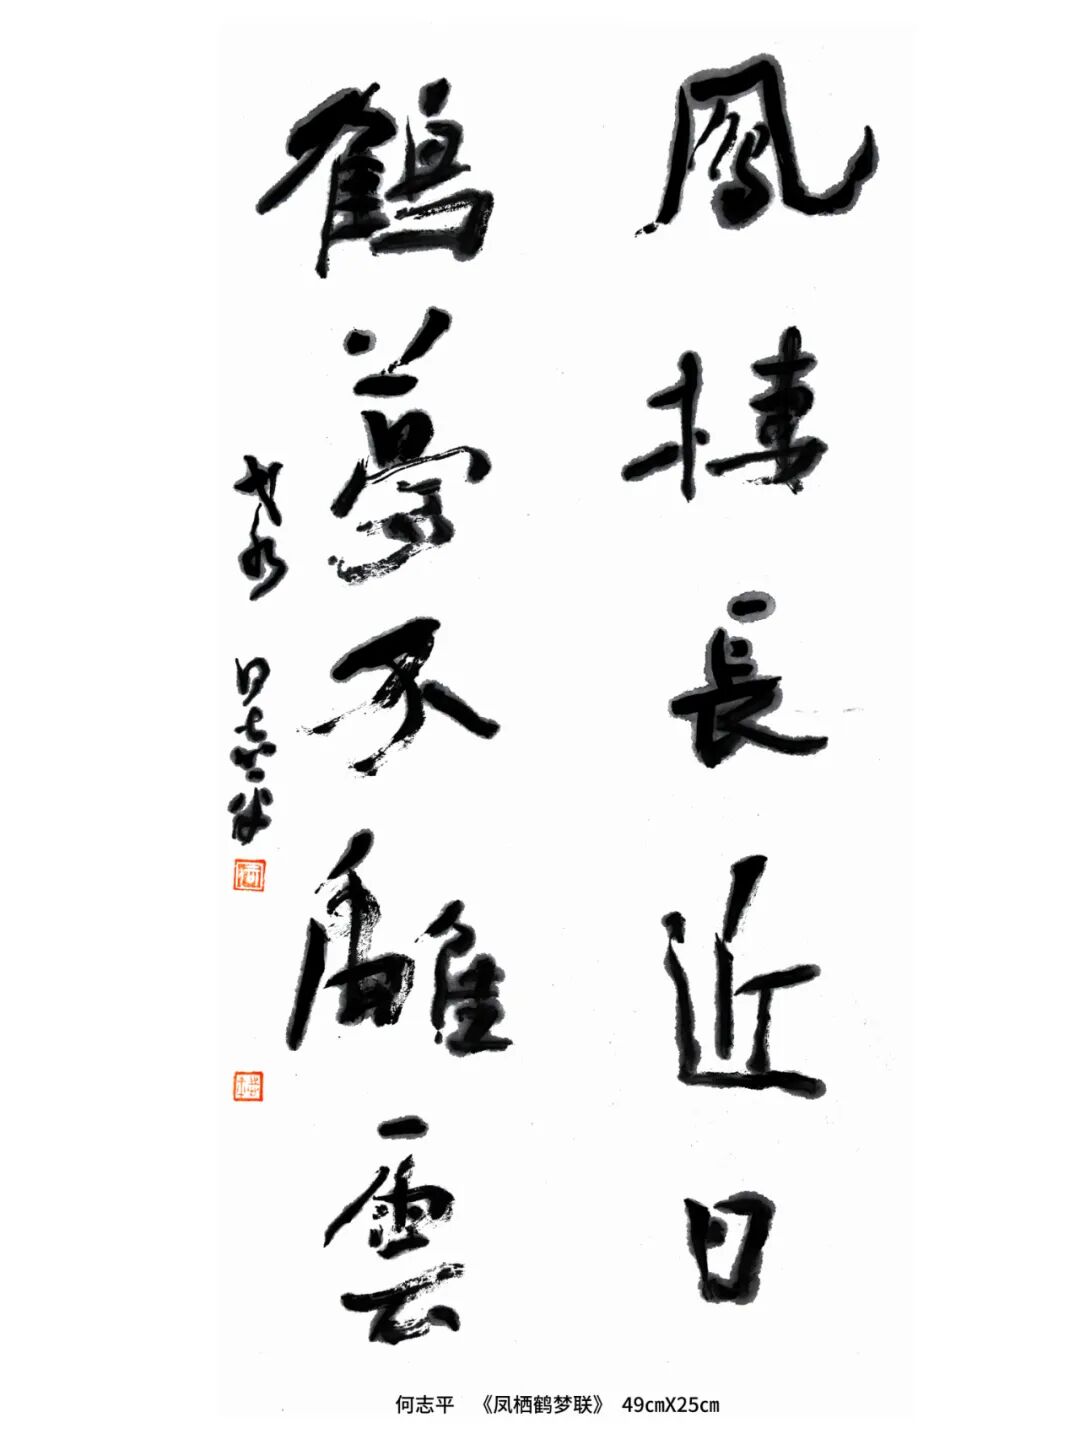 鳳棲長近日
鶴夢不離雲
戈水 何志平
何志平 《凤栖鹤梦联》 49cmX25cm